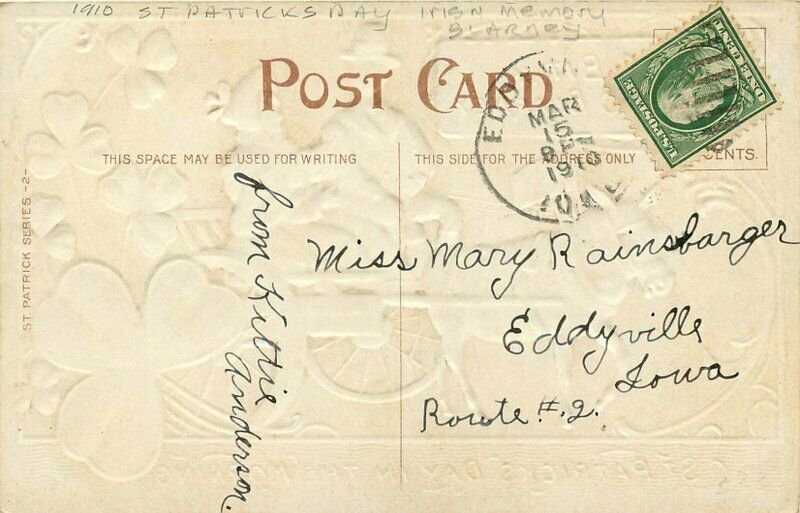 1910 ST PATRICKS DAY IRISH MEMORY
BLARNEY
POST CARD
THIS SPACE MAY BE USED FOR WRITING
THIS SIDE FOR THE ADDRESS ONLY
MAR
15
1910
IOWA
U.S. POSTAGE
CENTS.
ST. PATRICK SERIES -2-
from Kittie
Anderson.
Miss Mary Rainsbarger
Eddyville
Iowa
Route #.2.